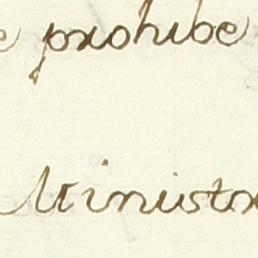 prohibe
Ministr